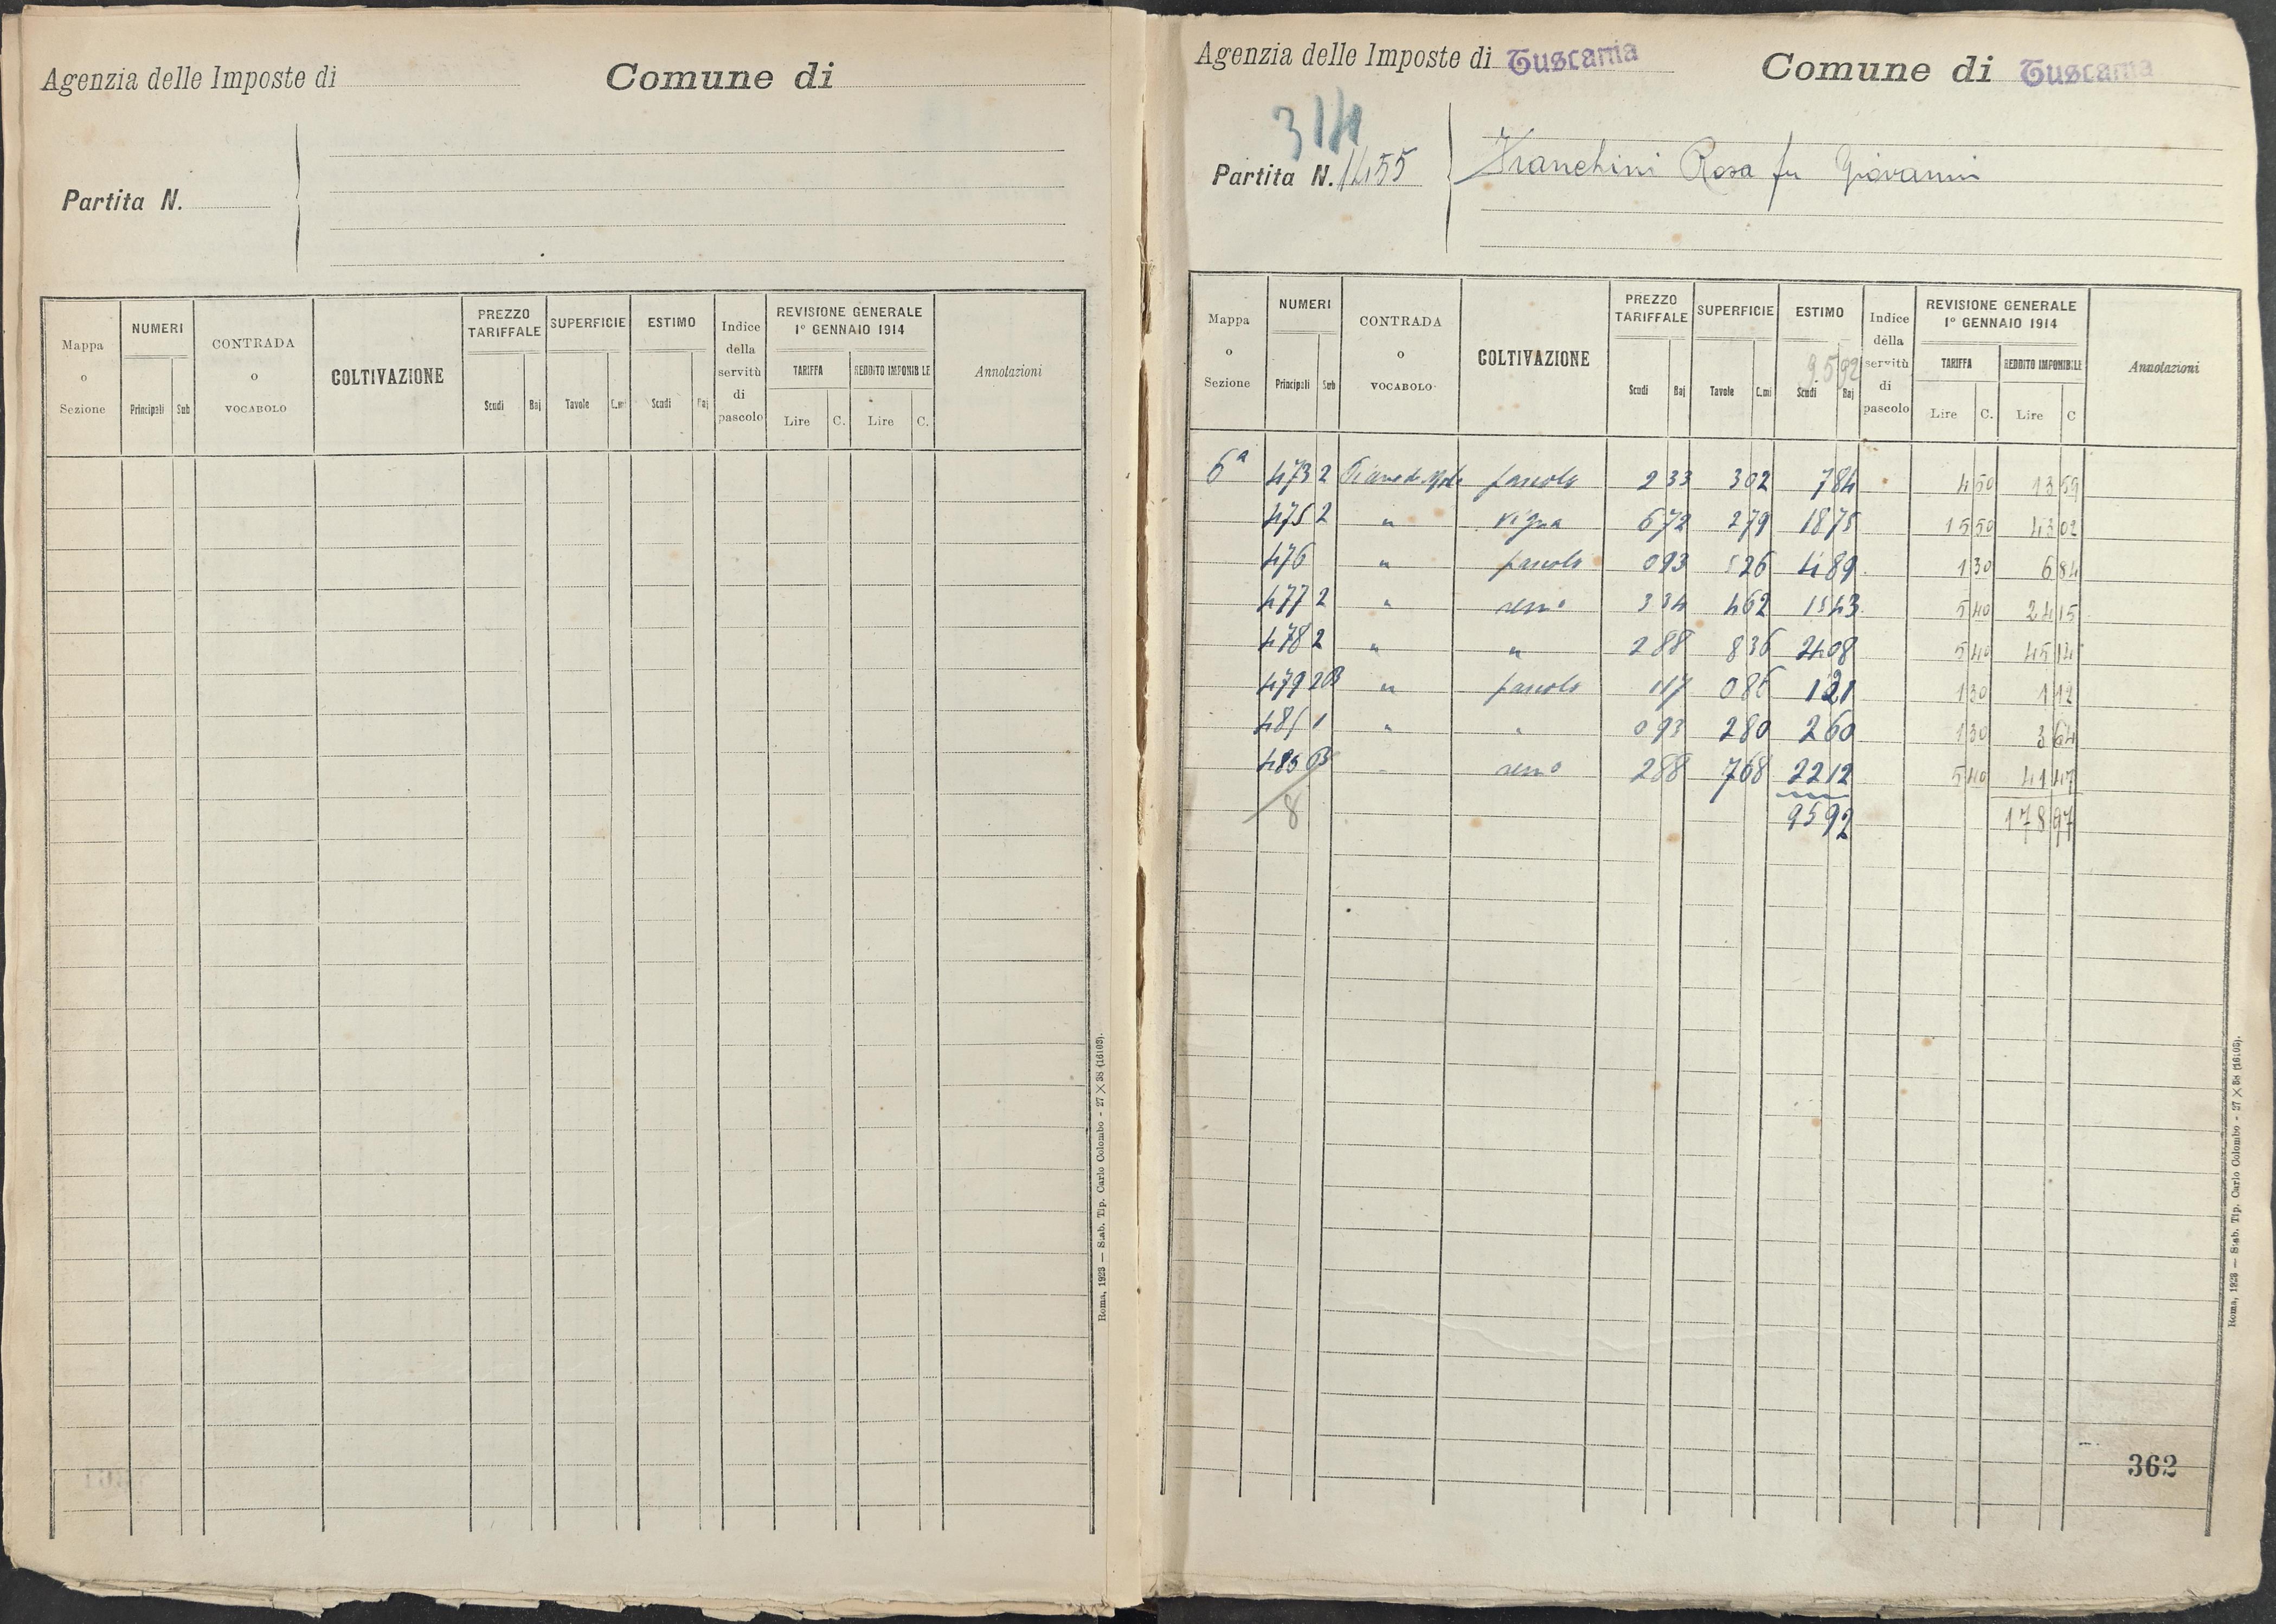 Agenzia delle Imposte di
Comune di
Partita N.
Mappa o Sezione
NUMERI
Principali Sub
CONTRADA o VOCABOLO
COLTIVAZIONE
PREZZO TARIFFALE
Scudi Baj
SUPERFICIE
Tavole C.mi
ESTIMO
Scudi Baj
Indice della servitù di pascolo
REVISIONE GENERALE
1° GENNAIO 1914
TARIFFA
REDDITO IMPONIBILE
Lire C. Lire C.
Annotazioni
Roma, 1923 — Stab. Tip. Carlo Colombo - 27 × 38 (16103).
Agenzia delle Imposte di Tuscania
Comune di Tuscania
314
Partita N. 1455
Franchini Rosa fu Giovanni
Mappa o Sezione
NUMERI
Principali Sub
CONTRADA o VOCABOLO
COLTIVAZIONE
PREZZO TARIFFALE
Scudi Baj
SUPERFICIE
Tavole C.mi
ESTIMO
9592
Scudi Baj
Indice della servitù di pascolo
REVISIONE GENERALE
1° GENNAIO 1914
TARIFFA
REDDITO IMPONIBILE
Lire C. Lire C
Annotazioni
6a 473 2 pascolo 2 33 3 02 7 84 4 50 13 59
475 2 " vigna 6 72 2 79 18 75 15 50 43 02
476 " pascolo 0 93 5 26 4 89 1 30 6 84
477 2 " sem° 3 34 4 62 15 43 5 40 24 15
478 2 " " 2 88 8 36 24 08 5 40 45 14
479 2B " pascolo 1 17 0 86 1 21 1 30 1 12
485 1 " " 0 93 2 80 2 60 1 30 3 64
485 " sem° 2 88 7 68 22 12 5 40 41 47
8 95 92 178 97
362
Roma, 1923 — Stab. Tip. Carlo Colombo - 27 × 38 (16103).